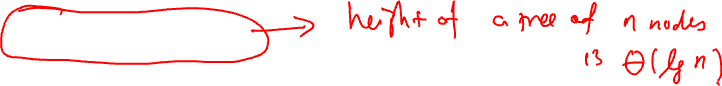 height of a tree of n nodes
is Θ(lg n)